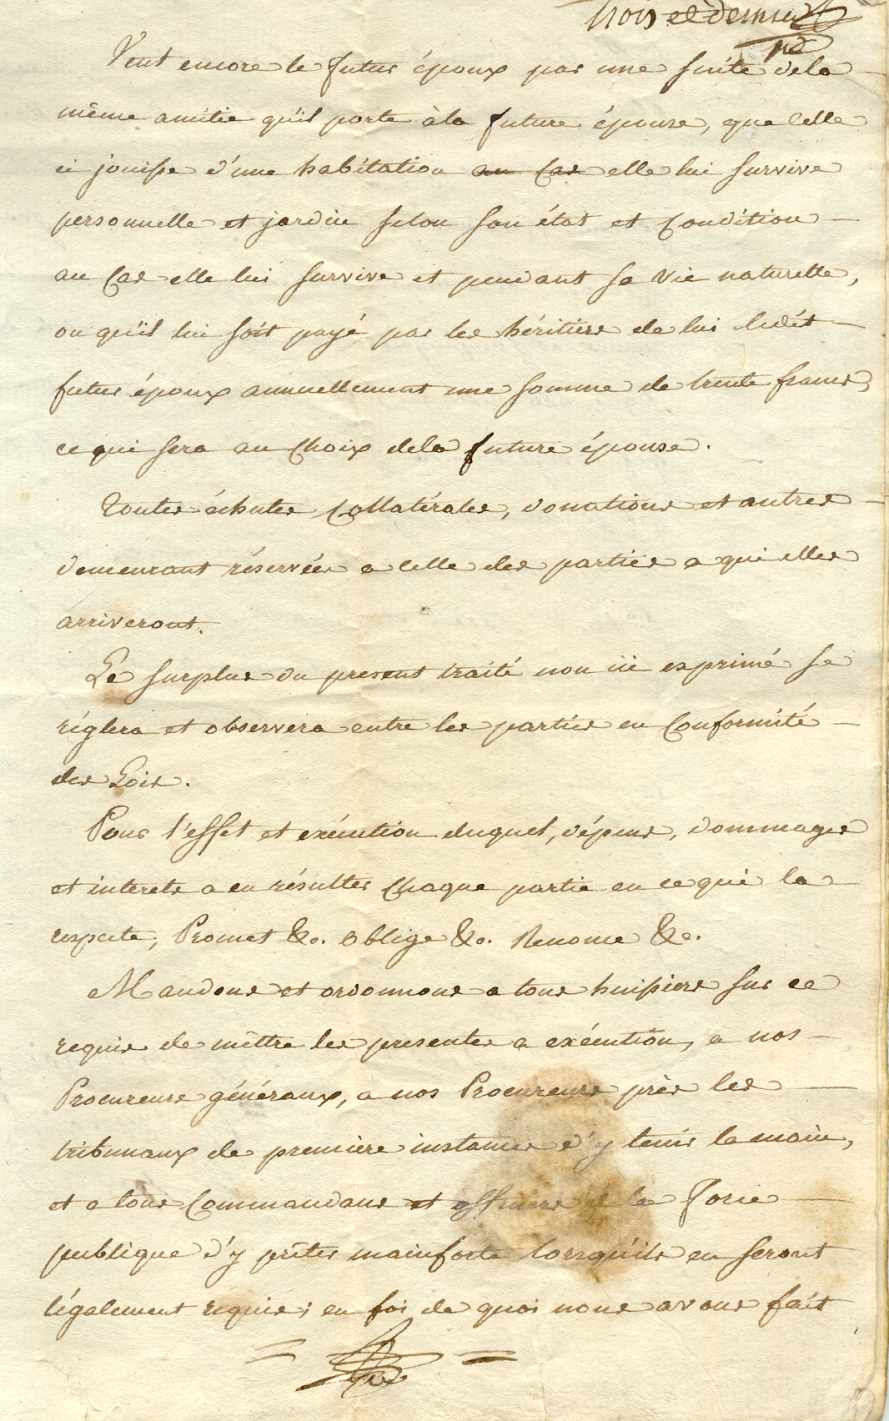 trois et dernier
Veut encore le futur époux par une suite dela
même amitié qu'il porte àla future épouse, que celle
ci jouisse d'une habitation au cas elle lui survive
personnelle et jardin selon son état et Condition
au Cas elle lui survive et pendant sa vie naturelle,
ou qu'il lui soit payé par les héritiers de lui ledit
futur époux annuellement une somme de trente francs,
ce qui sera au Choix dela future épouse.
Toutes échutes Collatérales, donations et autres
demeurant réservées a celle des parties a qui elles
arriveront.
Le surplus du present traité non ici exprimé se
réglera et observera entre les parties en Conformité
des Lois.
Pour l'effet et exécution duquel, dépens, dommages
et interets a en résulter Chaque partie en ce qui la
respecte, Promet &c. Oblige &c. Renonce &c.
Mandons et ordonnons a tous huissiers sur ce
requis de mèttre les presentes a exécution, a nos
Procureurs généraux, a nos Procureurs près les
tribunaux de premiere instance d'y tenir la main,
et a tous Commandans et officiers de la Force
publique d'y prêter mainforte lorsqu'ils en seront
légalement requis; en foi de quoi nous avons fait